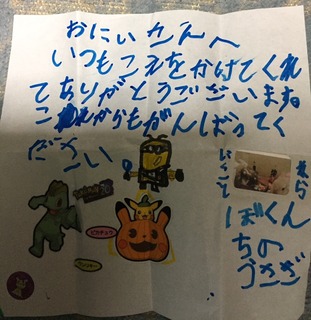 おにいさんへ
いつもこえをかけてくれ
てありがとうございますね
これからもがんばってく
ださい
ピカチュウ
ぼくん
ちの
うさぎ